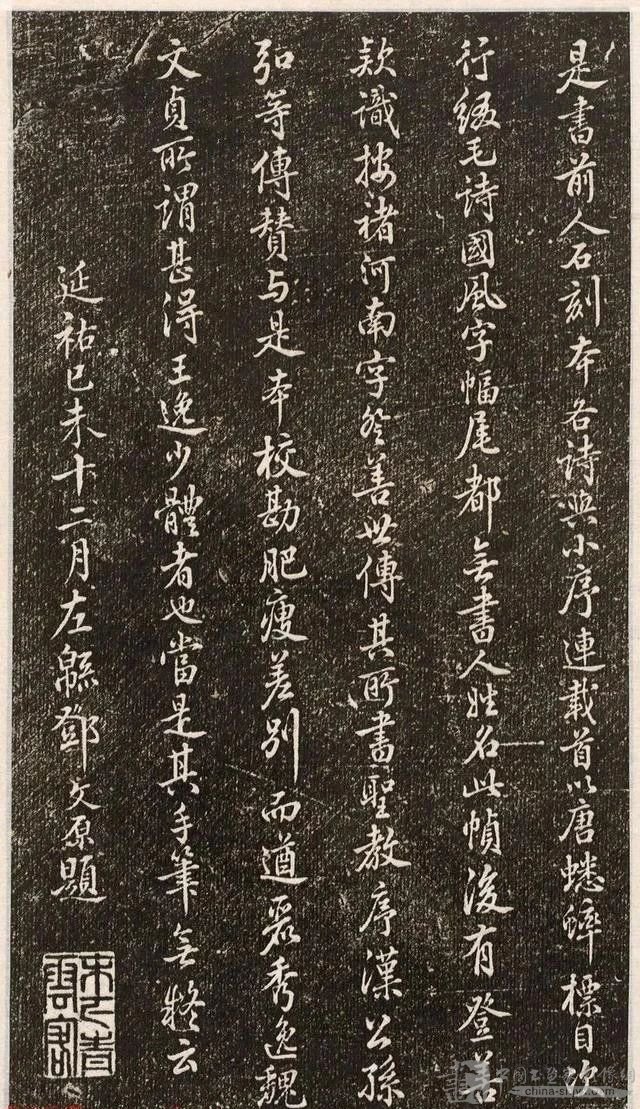 是書前人石刻本各詩與小序連載首以唐蟋蟀標目次
行綴毛詩國風字幅尾都無書人姓名此幀後有登善
款識按褚河南字登善世傳其所書聖教序漢公孫
弘等傳贊与是本校勘肥瘦差別而遒麗秀逸魏
文貞所謂甚得王逸少體者也當是其手筆無疑云
延祐己未十二月左緜鄧文原題
china-shj.com